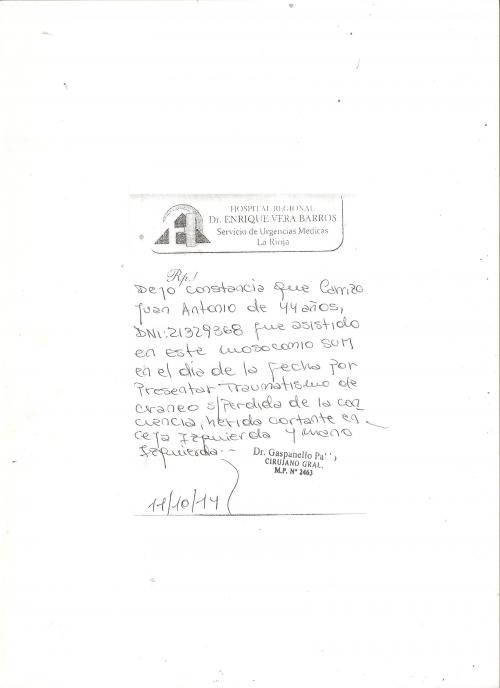 HOSPITAL REGIONAL
Dr. ENRIQUE VERA BARROS
Servicio de Urgencias Médicas
La Rioja
Rp.!
Dejo constancia que Carrizo
Juan Antonio de 44 años,
DNI: 21329368 fue asistido
en este nosocomio SUM
en el día de la fecha por
presentar Traumatismo de
craneo s/perdida de la con
ciencia, herida cortante en
ceja Izquierda y mano
Izquierda.-
Dr. Gaspanello
CIRUJANO GRAL.
M.P. Nº 2463
11/10/14